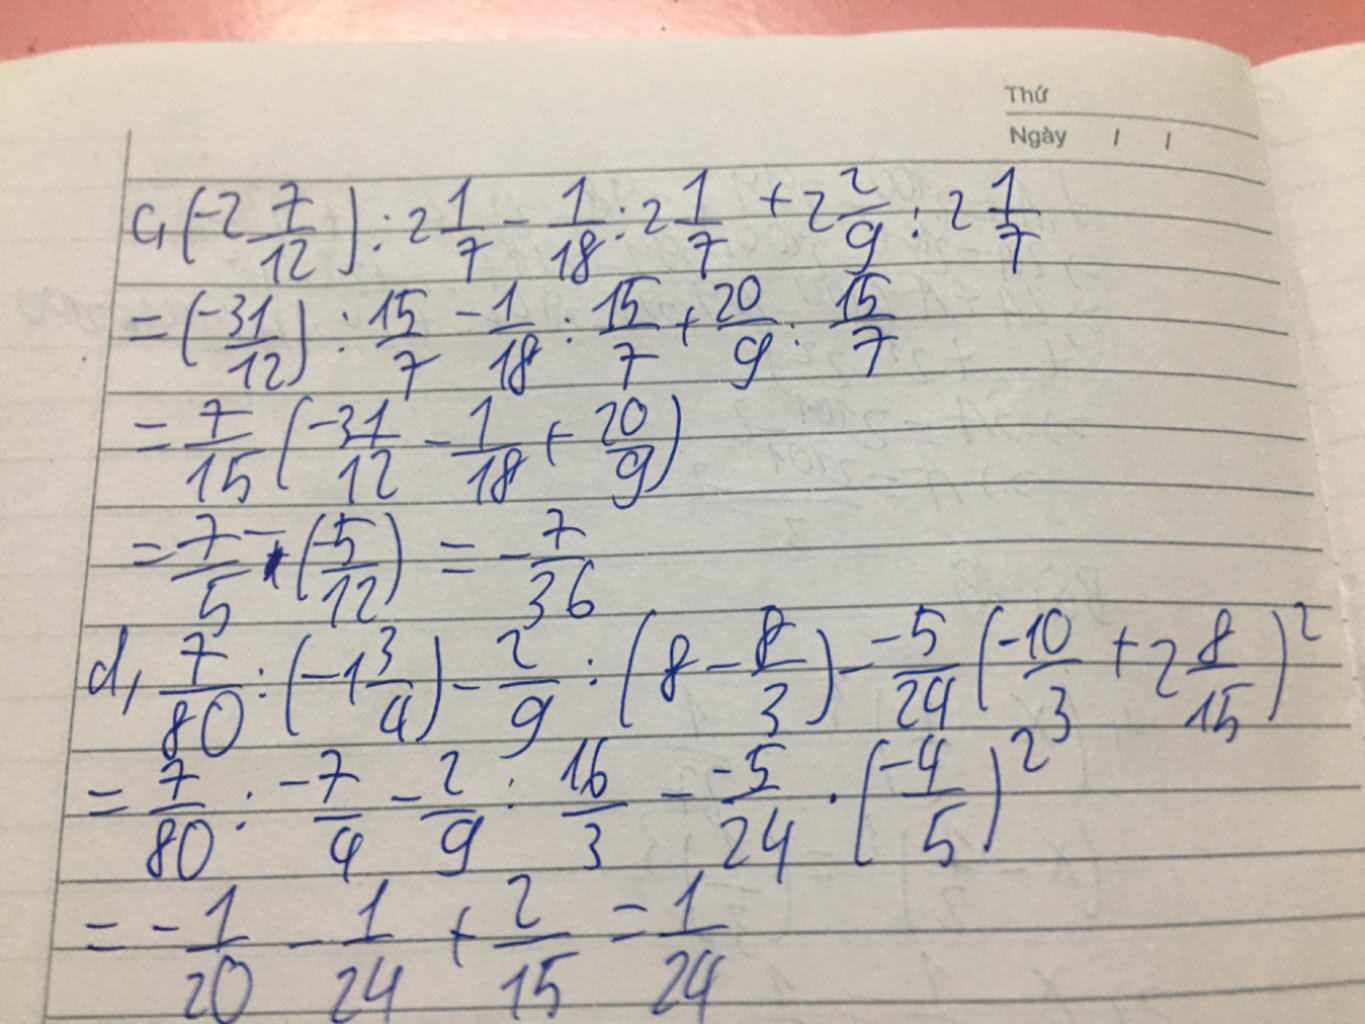 Thứ
Ngày / /
c, (-2 7/12) : 2 1/7 - 1/18 : 2 1/7 + 2 2/9 : 2 1/7
= (-31/12) : 15/7 - 1/18 : 15/7 + 20/9 : 15/7
= 7/15 (-31/12 - 1/18 + 20/9)
= 7/5 . (-5/12) = -7/36
d, 7/80 : (-1 3/4) - 2/9 : (8 - 8/3) - -5/24 (-10/3 + 2 8/15)²
= 7/80 : -7/4 - 2/9 : 16/3 - -5/24 . (-4/5)²
= -1/20 - 1/24 + 2/15 = 1/24